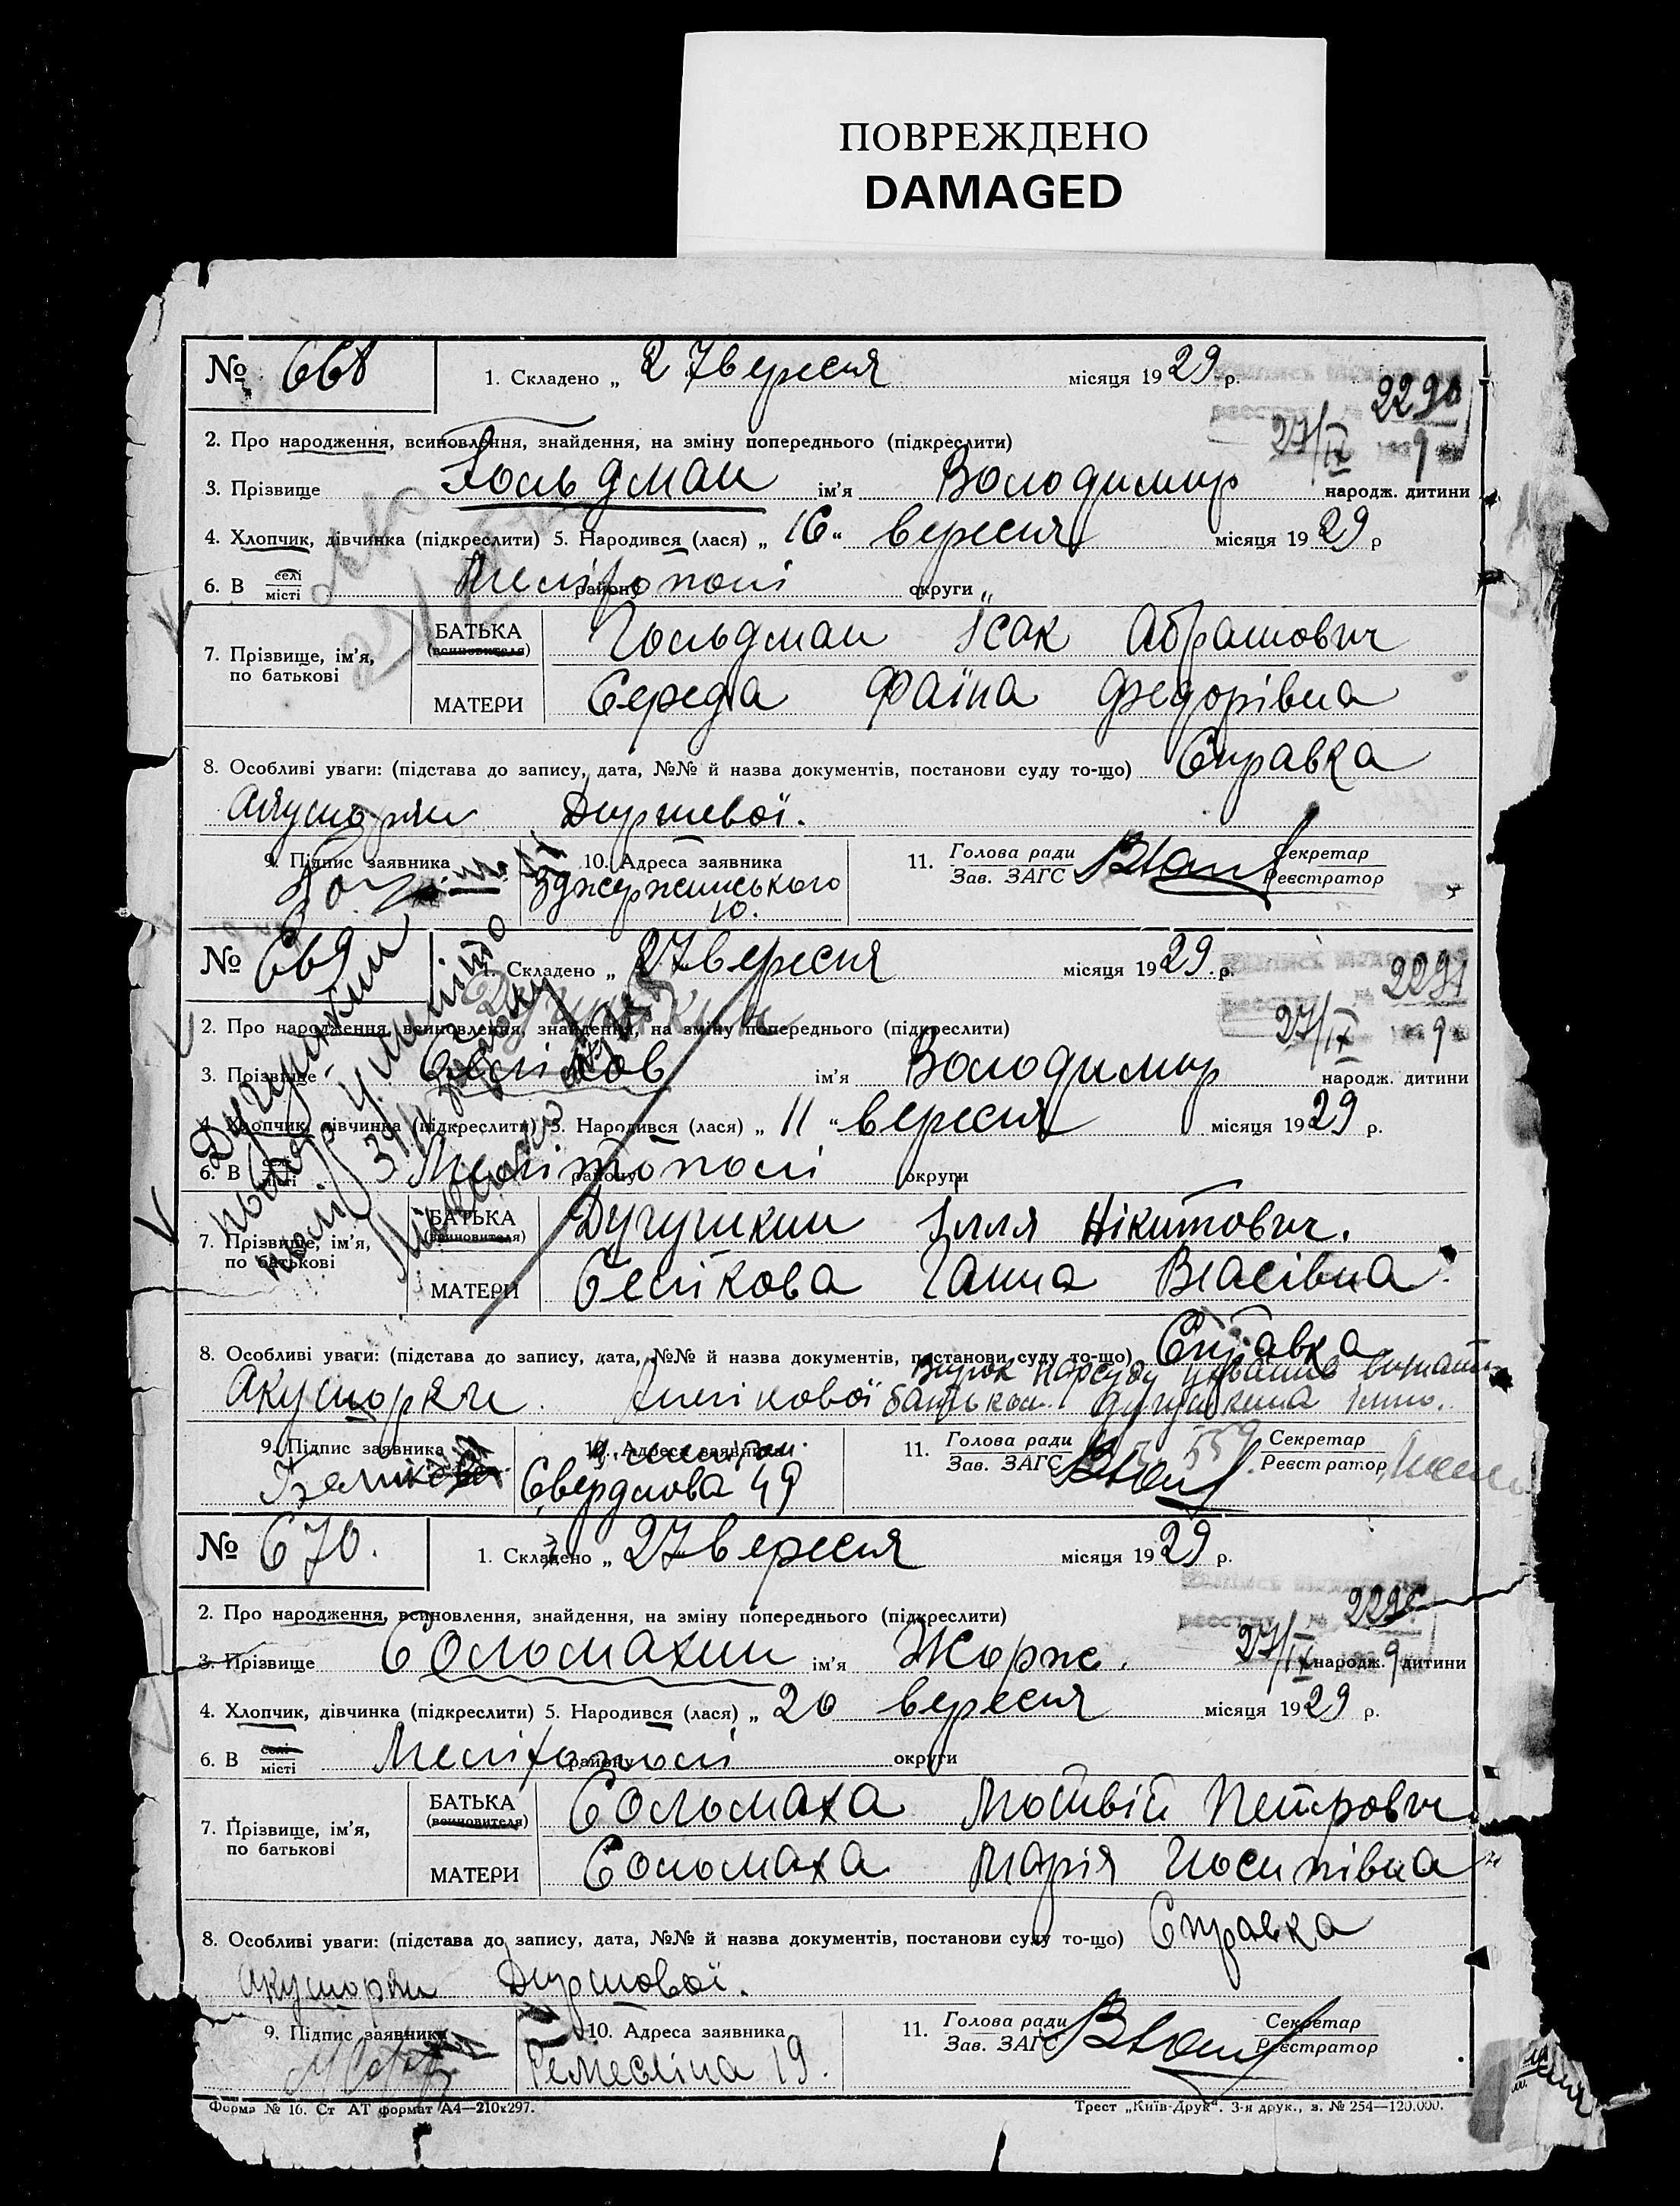 ПОВРЕЖДЕНО
DAMAGED
№ 668 1. Складено „ 27 вересня місяця 1929 р. 2290
2. Про народження, всиновлення, знайдення, на зміну попереднього (підкреслити) 27/IX 9
3. Прізвище Гольдман ім'я Володимир народж. дитини
4. Хлопчик, дівчинка (підкреслити) 5. Народився (лася) „ 16 “ вересня місяця 1929 р
6. В селі місті Мелітополі району округи
7. Прізвище, ім'я, по батькові БАТЬКА (всиновителя) Гольдман Ісак Абрамович
МАТЕРИ Середа Фаїна Федорівна
8. Особливі уваги: (підстава до запису, дата, №№ й назва документів, постанови суду то-що) Справка
Акушорки
9. Підпис заявника 10. Адреса заявника 11. Голова ради Зав. ЗАГС Секретар Реєстратор
Дзержинського
10.
№ 669 1. Складено „ 27 вересня місяця 1929 р. 2291
2. Про народження, всиновлення, знайдення, на зміну попереднього (підкреслити) 27/IX 9
Дугушкин
3. Прізвище Беліков ім'я Володимир народж. дитини
4. Хлопчик, дівчинка (підкреслити) 5. Народився (лася) „ 11 “ вересня місяця 1929 р.
6. В селі місті Мелітополі району округи
7. Прізвище, ім'я, по батькові БАТЬКА (всиновителя) Дугушкин Ілля Нікитович.
МАТЕРИ Белікова Ганна Власівна
8. Особливі уваги: (підстава до запису, дата, №№ й назва документів, постанови суду то-що) Справка
Акушорки Анікової
батьком Дугушкина Іллю.
9. Підпис заявника 10. Адреса заявника 11. Голова ради Зав. ЗАГС Секретар Реєстратор
Беликова Свердлова 49
№ 670. 1. Складено „ 27 вересня місяця 1929 р.
2. Про народження, всиновлення, знайдення, на зміну попереднього (підкреслити)
3. Прізвище Соломахин ім'я Жорж. 27/IX 9 народж. дитини
4. Хлопчик, дівчинка (підкреслити) 5. Народився (лася) „ 20 вересня місяця 1929 р.
6. В селі місті Мелітополі району округи
7. Прізвище, ім'я, по батькові БАТЬКА (всиновителя) Соломаха Матвій Петрович
МАТЕРИ Соломаха Марія Йосипівна
8. Особливі уваги: (підстава до запису, дата, №№ й назва документів, постанови суду то-що) Справка
Акушорки
9. Підпис заявника 10. Адреса заявника 11. Голова ради Зав. ЗАГС Секретар Реєстратор
Ремесліна 19.
Форма № 16. Ст АТ формат А4—210x297. Трест „Київ-Друк“. 3-я друк., з. № 254—120.000.